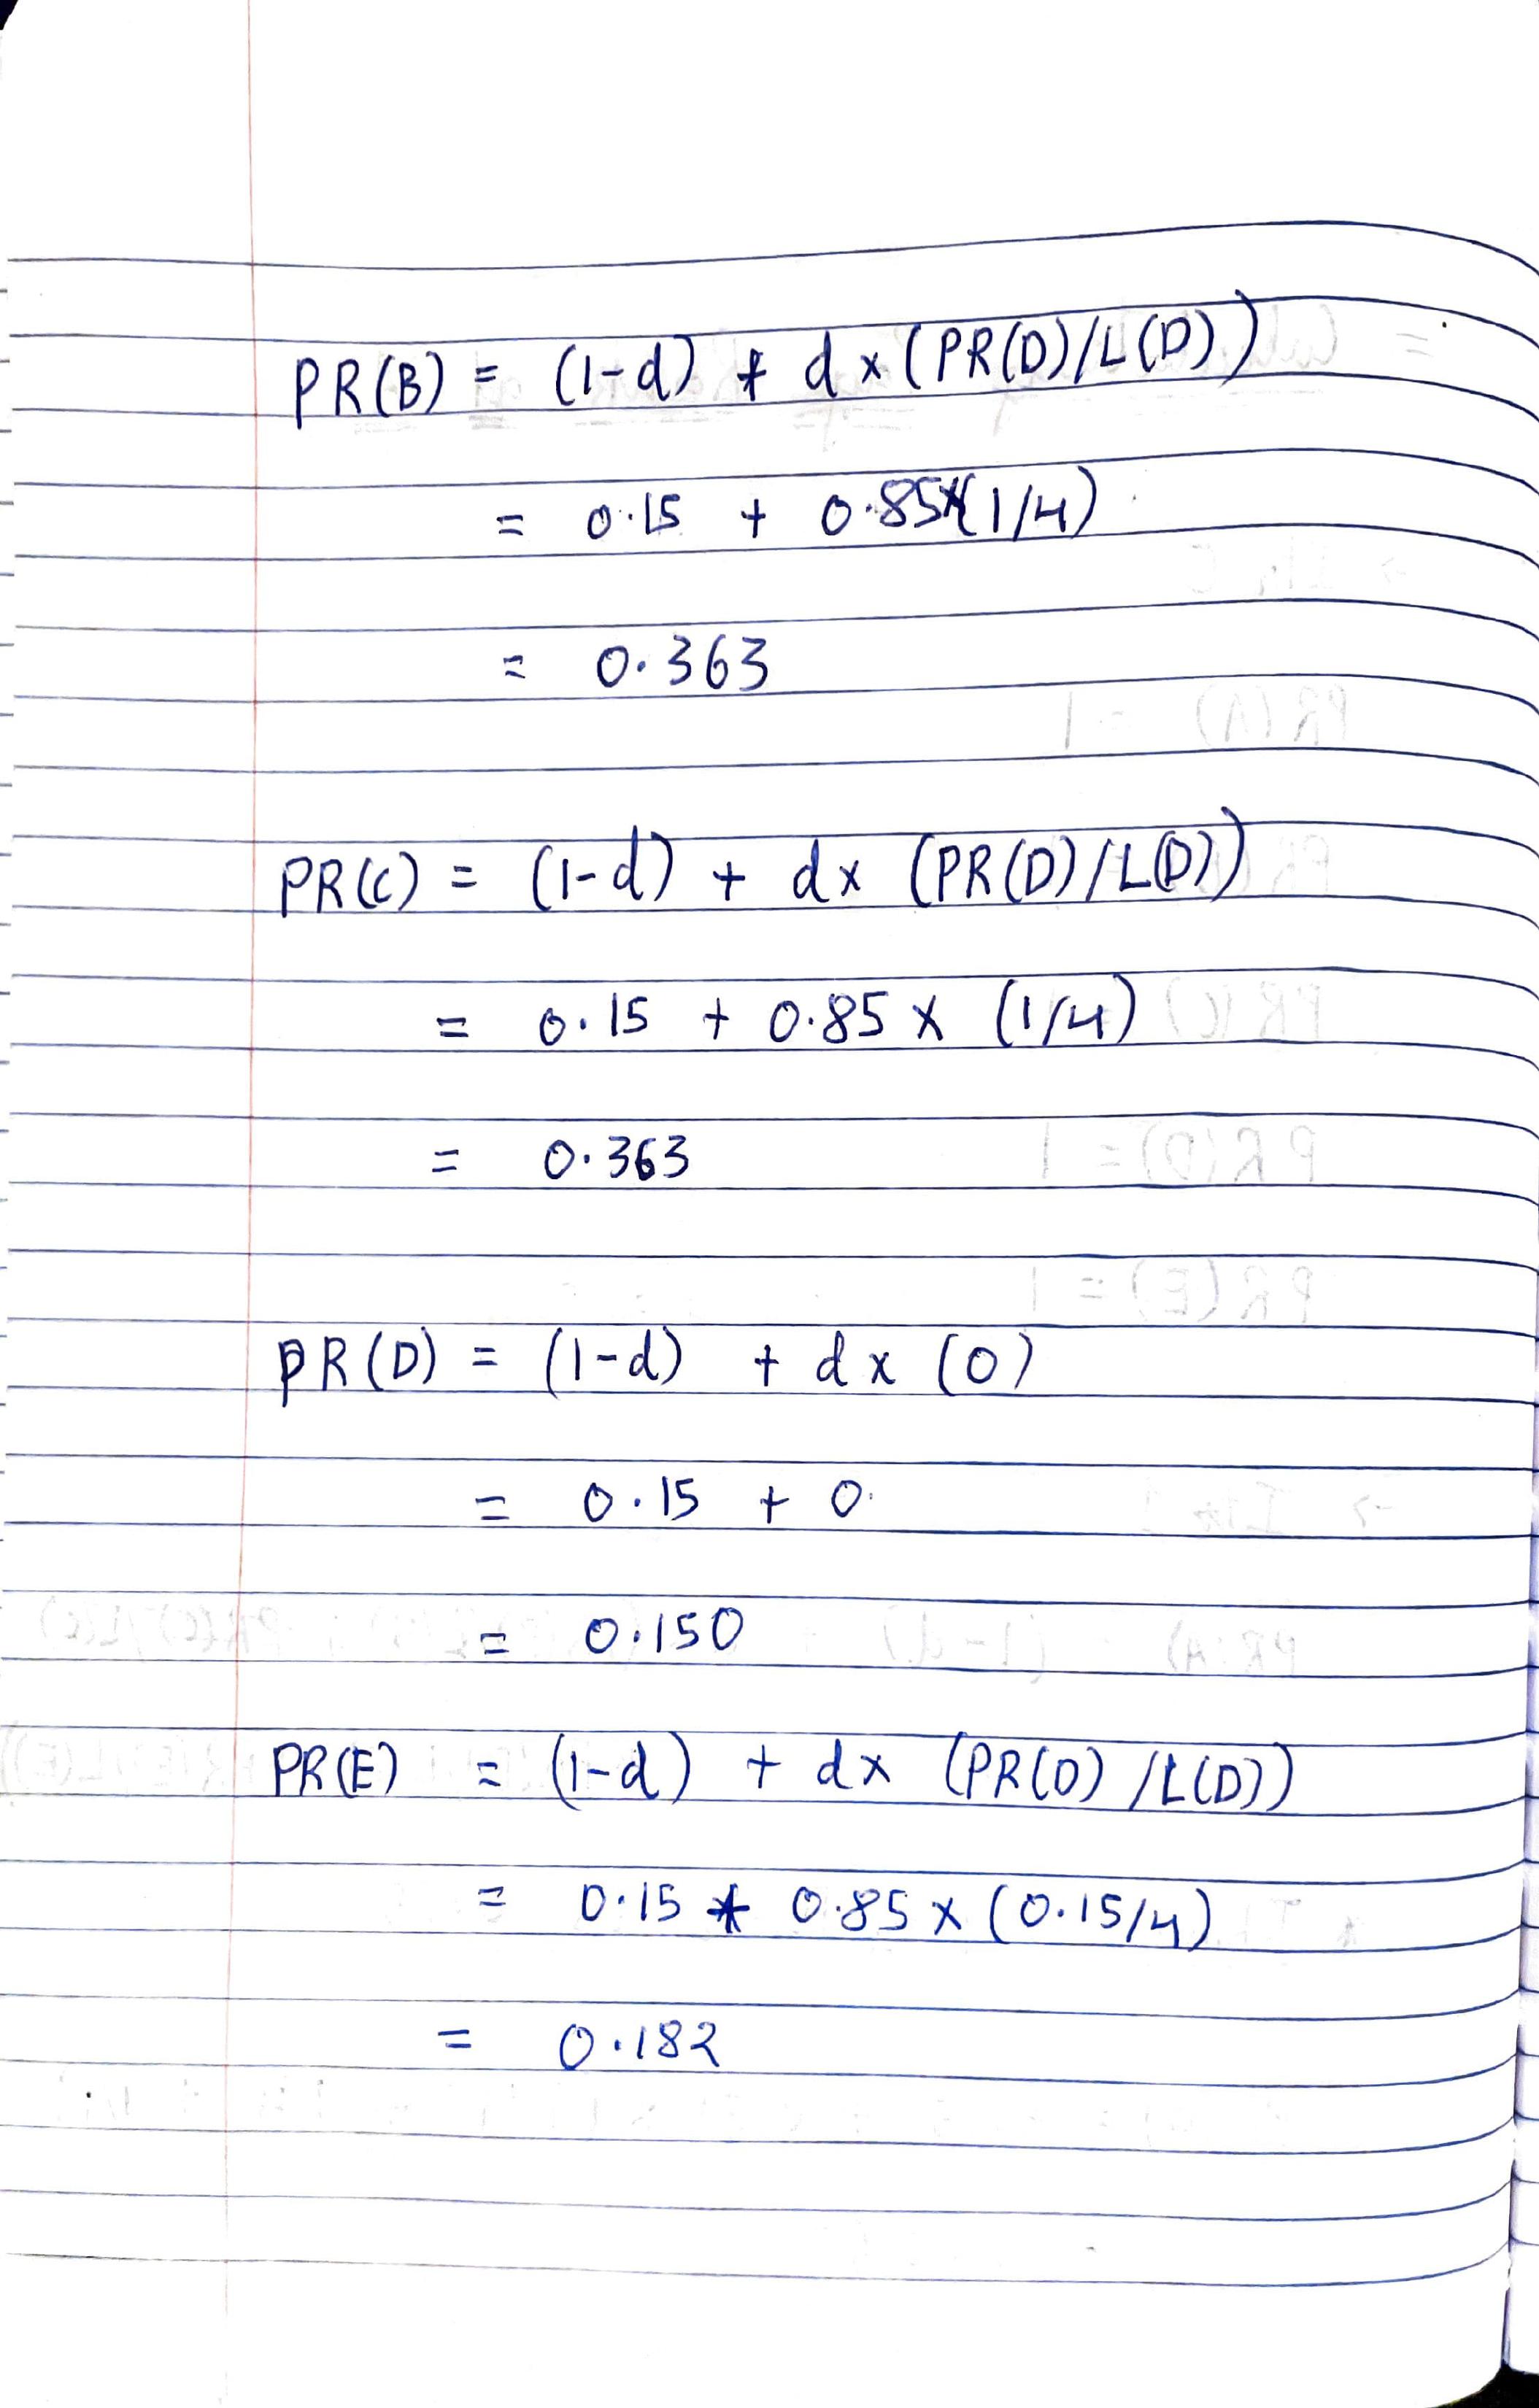 PR(B) = (1-d) + d x (PR(D)/L(D))
= 0.15 + 0.85x(1/4)
= 0.363
PR(C) = (1-d) + dx (PR(D)/L(D))
= 0.15 + 0.85 x (1/4)
= 0.363
PR(D) = (1-d) + dx (0)
= 0.15 + 0
= 0.150
PR(E) = (1-d) + dx (PR(D)/L(D))
= 0.15 + 0.85 x (0.15/4)
= 0.182